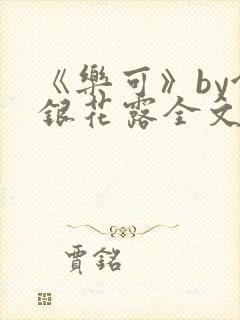 《樂可》by
銀花露全文
賈銘